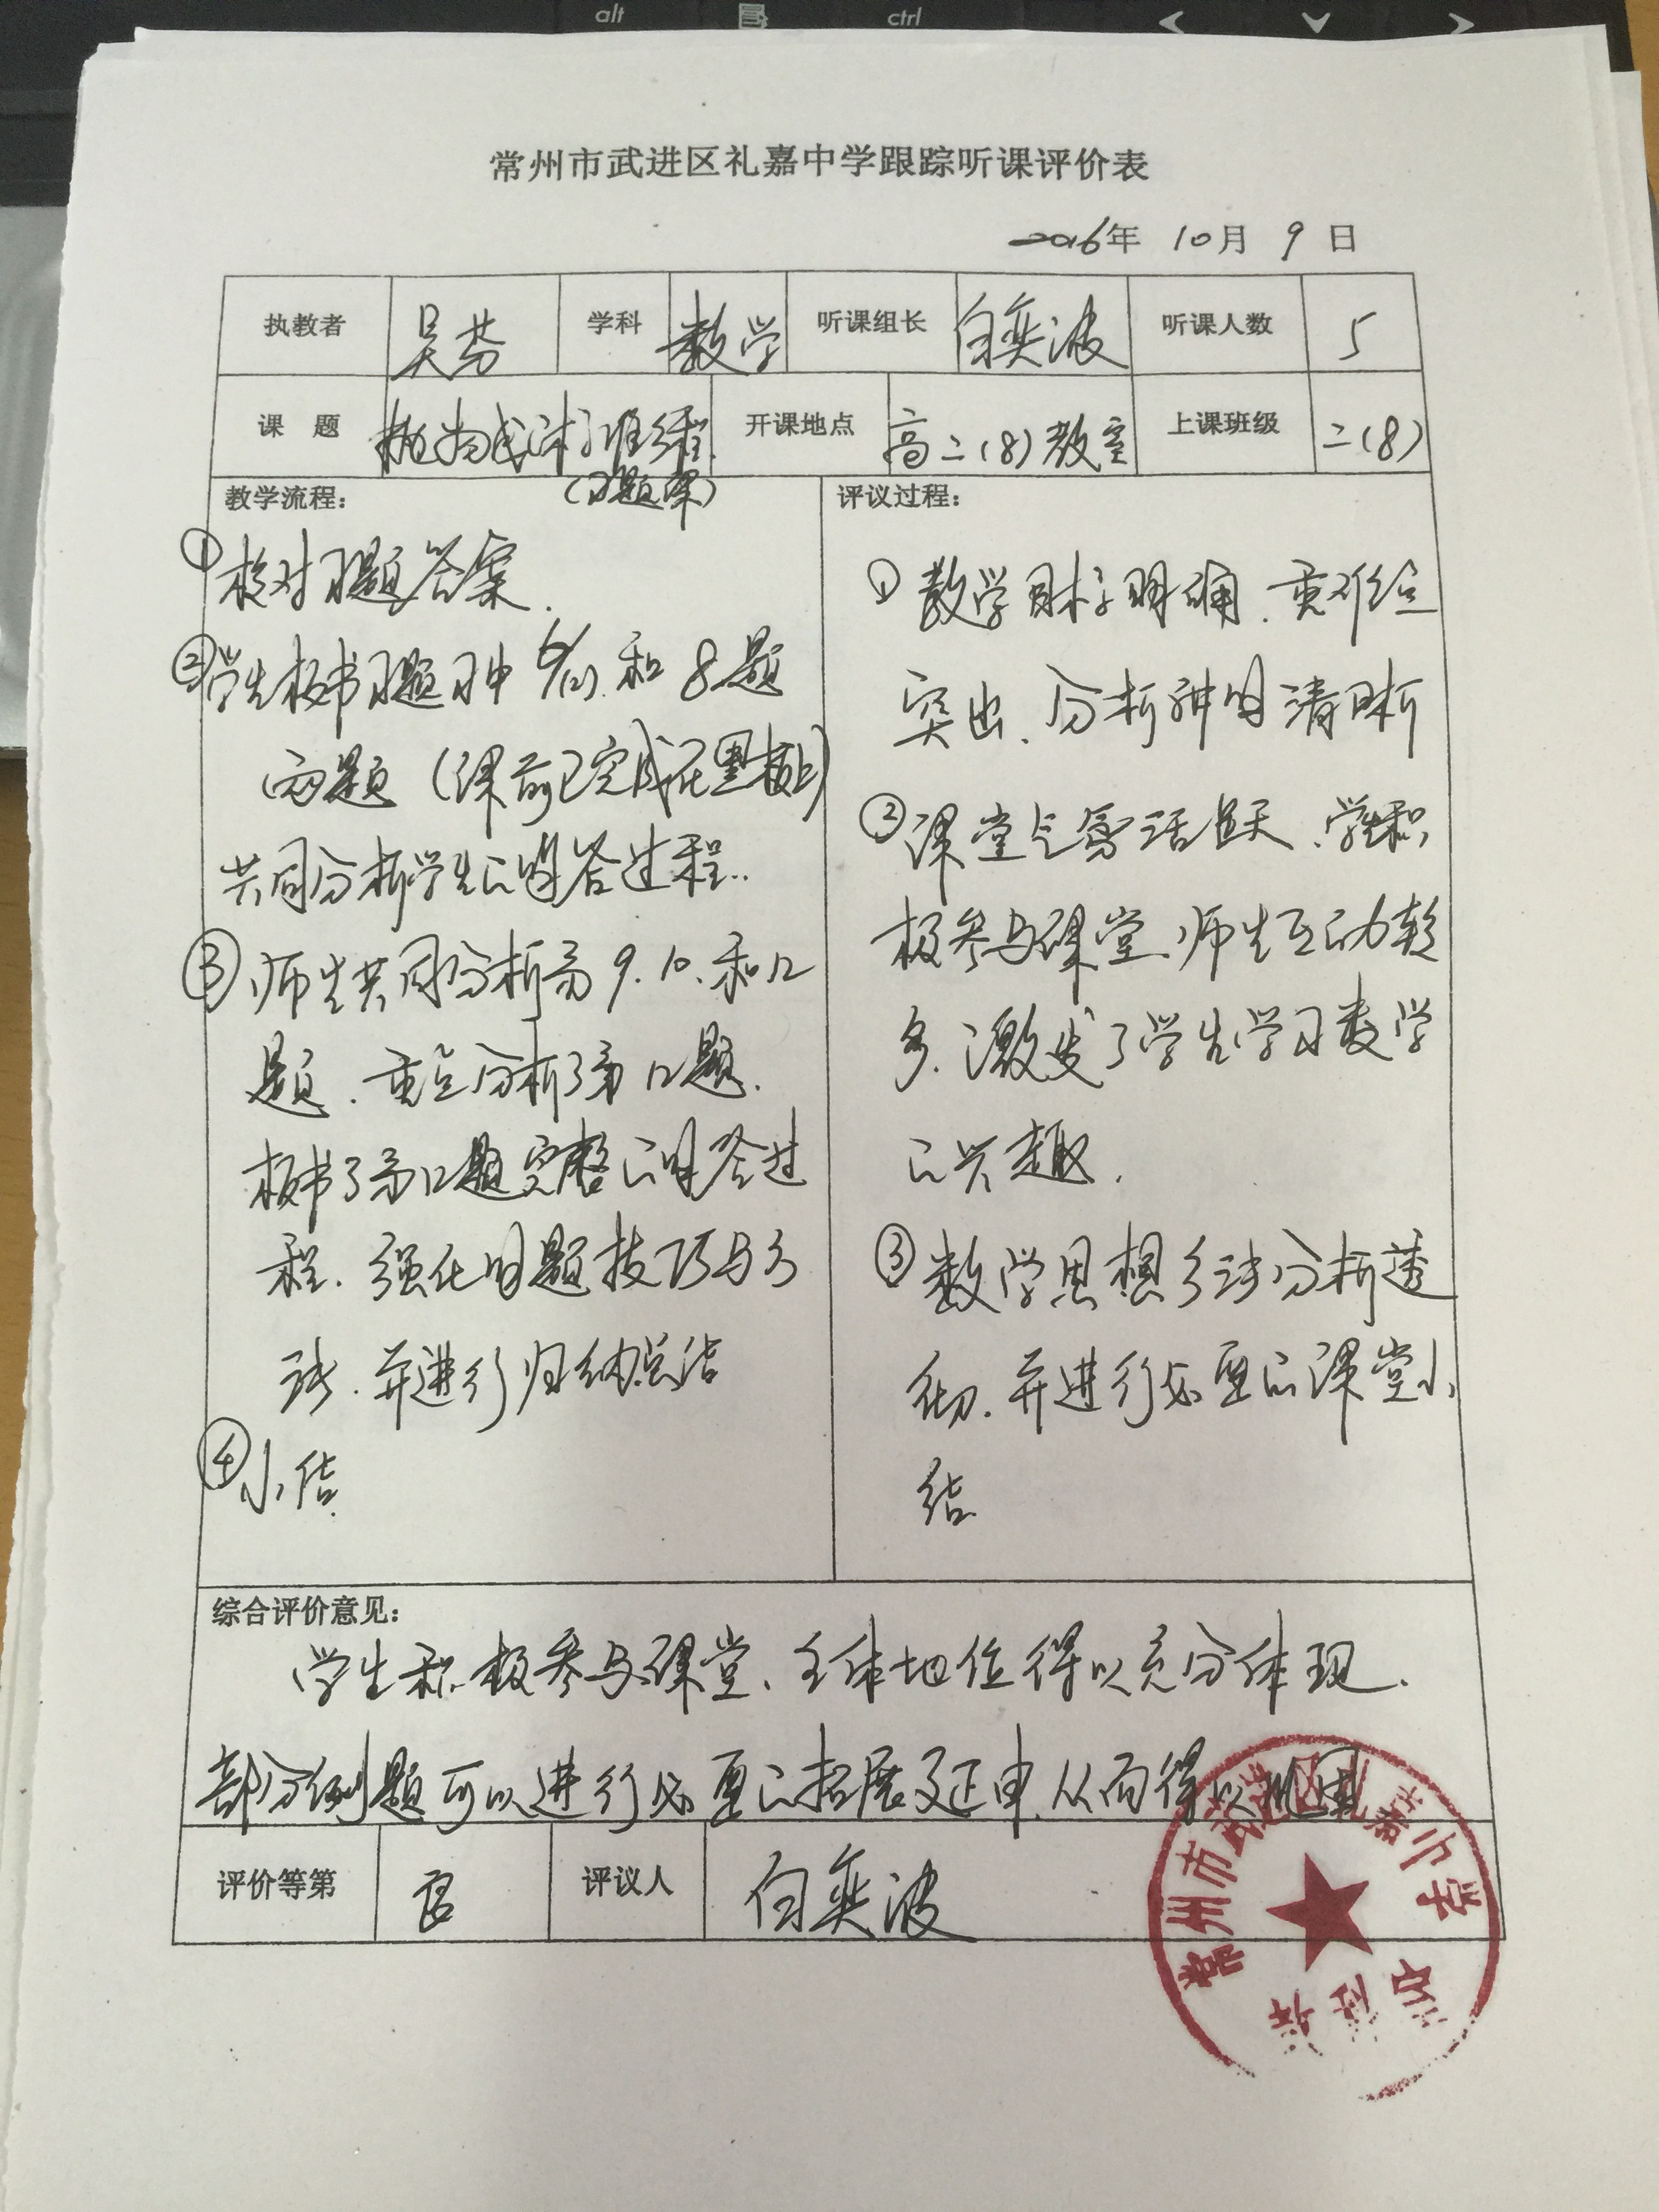 alt ctrl
常州市武进区礼嘉中学跟踪听课评价表
2016年 10月 9日
执教者 吴芬 学科 数学 听课组长 白奕波 听课人数 5
课 题 抛物线标准方程 开课地点 高二(8)教室 上课班级 二(8)
(习题课)
教学流程:
①核对习题答案.
②学生板书习题册中 和8题
两题(课前已完成在黑板上)
共同分析学生的解答过程..
③师生共同分析第9.10.和12
题.重点分析了第12题.
板书了第12题完整的解答过
程.强化解题技巧与方
法.并进行归纳总结
④小结.
评议过程:
①教学目标明确.重难点
突出.分析讲解清晰
②课堂气氛活跃.学生积
极参与课堂.师生互动较
多.激发了学生学习数学
的兴趣.
③数学思想方法分析透
彻.并进行必要的课堂小
结
综合评价意见:
学生积极参与课堂、主体地位得以充分体现.
部分例题可以进行必要的拓展及延申.从而得以巩固
评价等第 良 评议人 白奕波
常州市武进区礼嘉中学